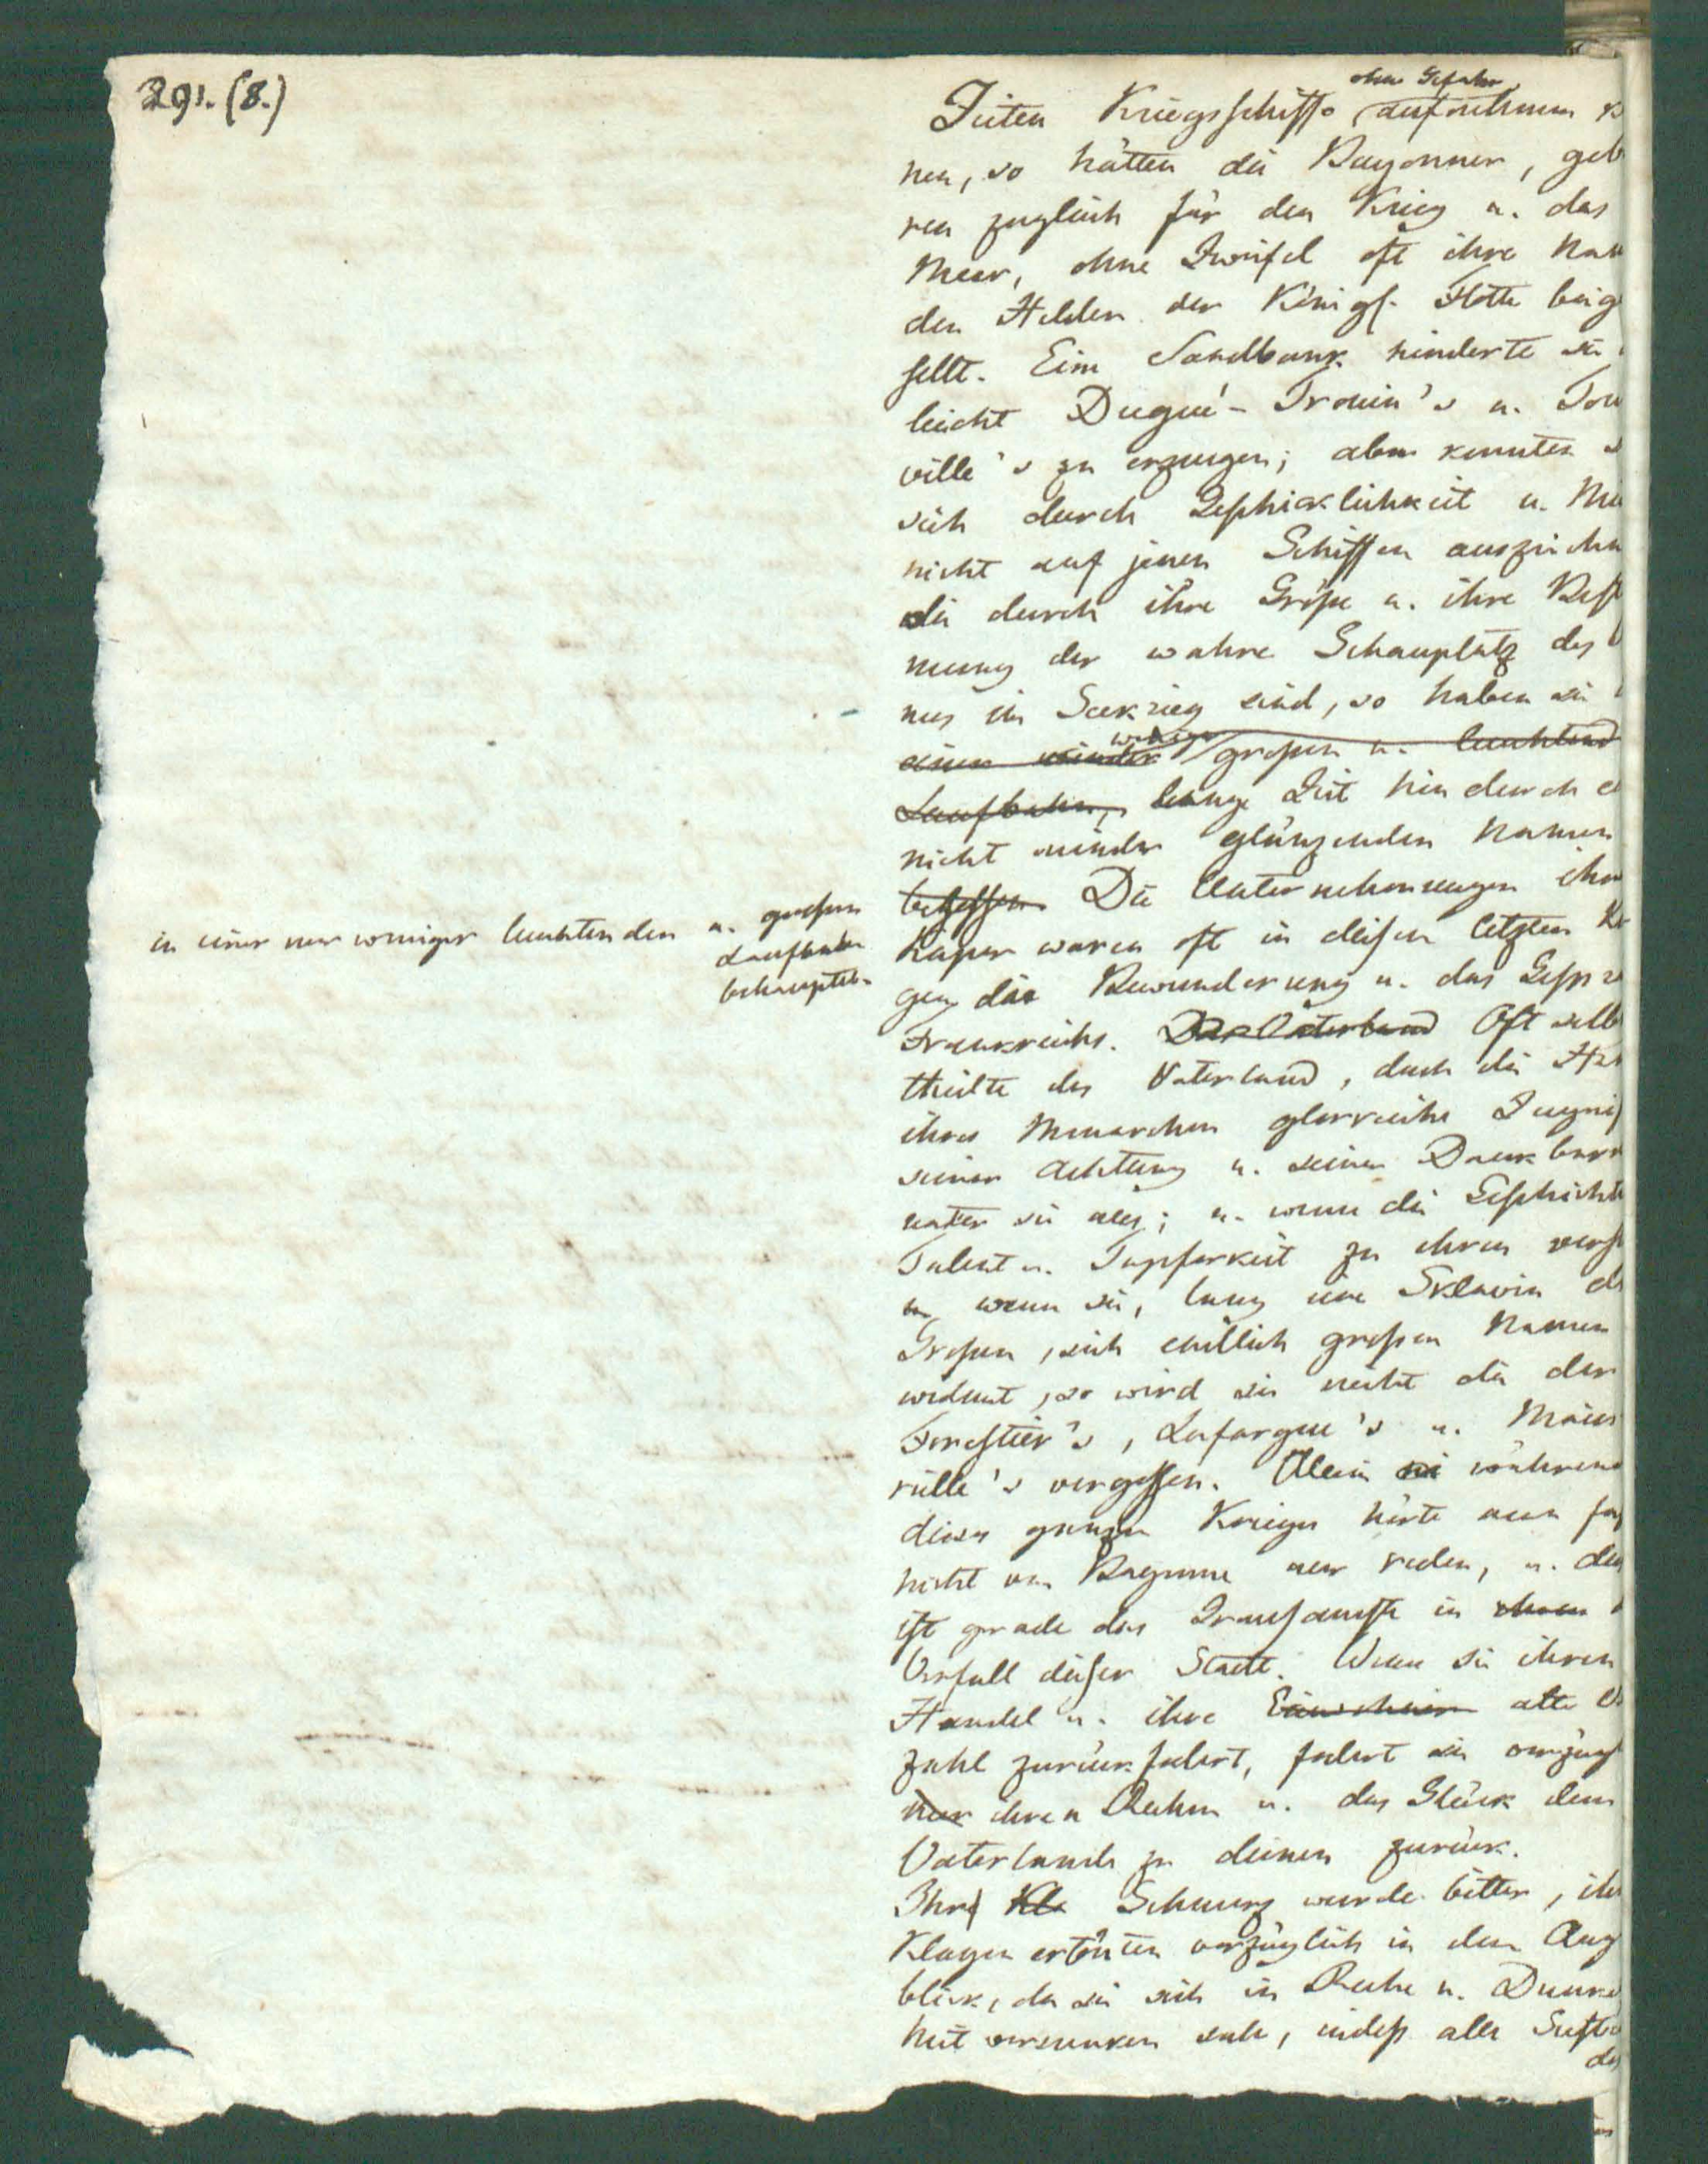 291. (8.)
ohne Gefahr
Zeiten Kriegsschiffe aufnehmen k
nen, so hätten die Bayonner, geb
ren zugleich für den Krieg u. das
Meer, ohne Zweifel oft ihre Nam
den Helden der Königl. Flotte beig
sellt. Eine Sandbank hinderte sie
leicht Dugué-Trouin's u. Tou
ville's zu erzeugen; aber konnten s
sich durch Geschicklichkeit u. Mu
nicht auf jenen Schiffen auszeichn
die durch ihre Größe u. ihre Best
mung der wahre Schauplatz des
mes im Seekrieg sind, so haben sie
einer minder weniger großen u. leuchtend
Laufbahn, lange Zeit hindurch ei
nicht minder glänzenden Namen
in einer nur weniger leuchtenden u. großen
Laufbahn
behauptet.
besessen. Die Unternehmungen ihre
Kaper waren oft in diesen letzten Kr
gen die Bewunderung u. das Gesprä
Frankreichs. Das Vaterland Oft selb
theilte das Vaterland, durch die Hän
ihres Monarchen glorreiche Zeugnis
seiner Achtung u. seiner Dankbark
unter sie aus; u. wenn die Geschicht
Talent u. Tapferkeit zu ehren verst
u. wenn sie, lang eine Sklavin de
Großen, sich endlich großen Namen
widmet, so wird sie nicht die der
Forestier's, Lafargue's u.
rille's vergessen. Allein während
dieses ganzen Krieges hörte man fas
nicht von Bayonne nur reden, u. das
ist gerade das Grausamste in ihrem
Verfall dieser Stadt. Wenn sie ihren
Handel u. ihre Einwohner alte
zahl zurückfodert, fodert sie vorzügl
nur ihren Ruhm u. das Glück dem
Vaterlande zu dienen zurück.
Ihr Kla Schmerz wurde bitter, ihr
Klagen ertönten vorzüglich in dem Aug
blick, da sie sich in Ruhe u. Dunkel
heit versunken sah, indeß alle Seestä
des